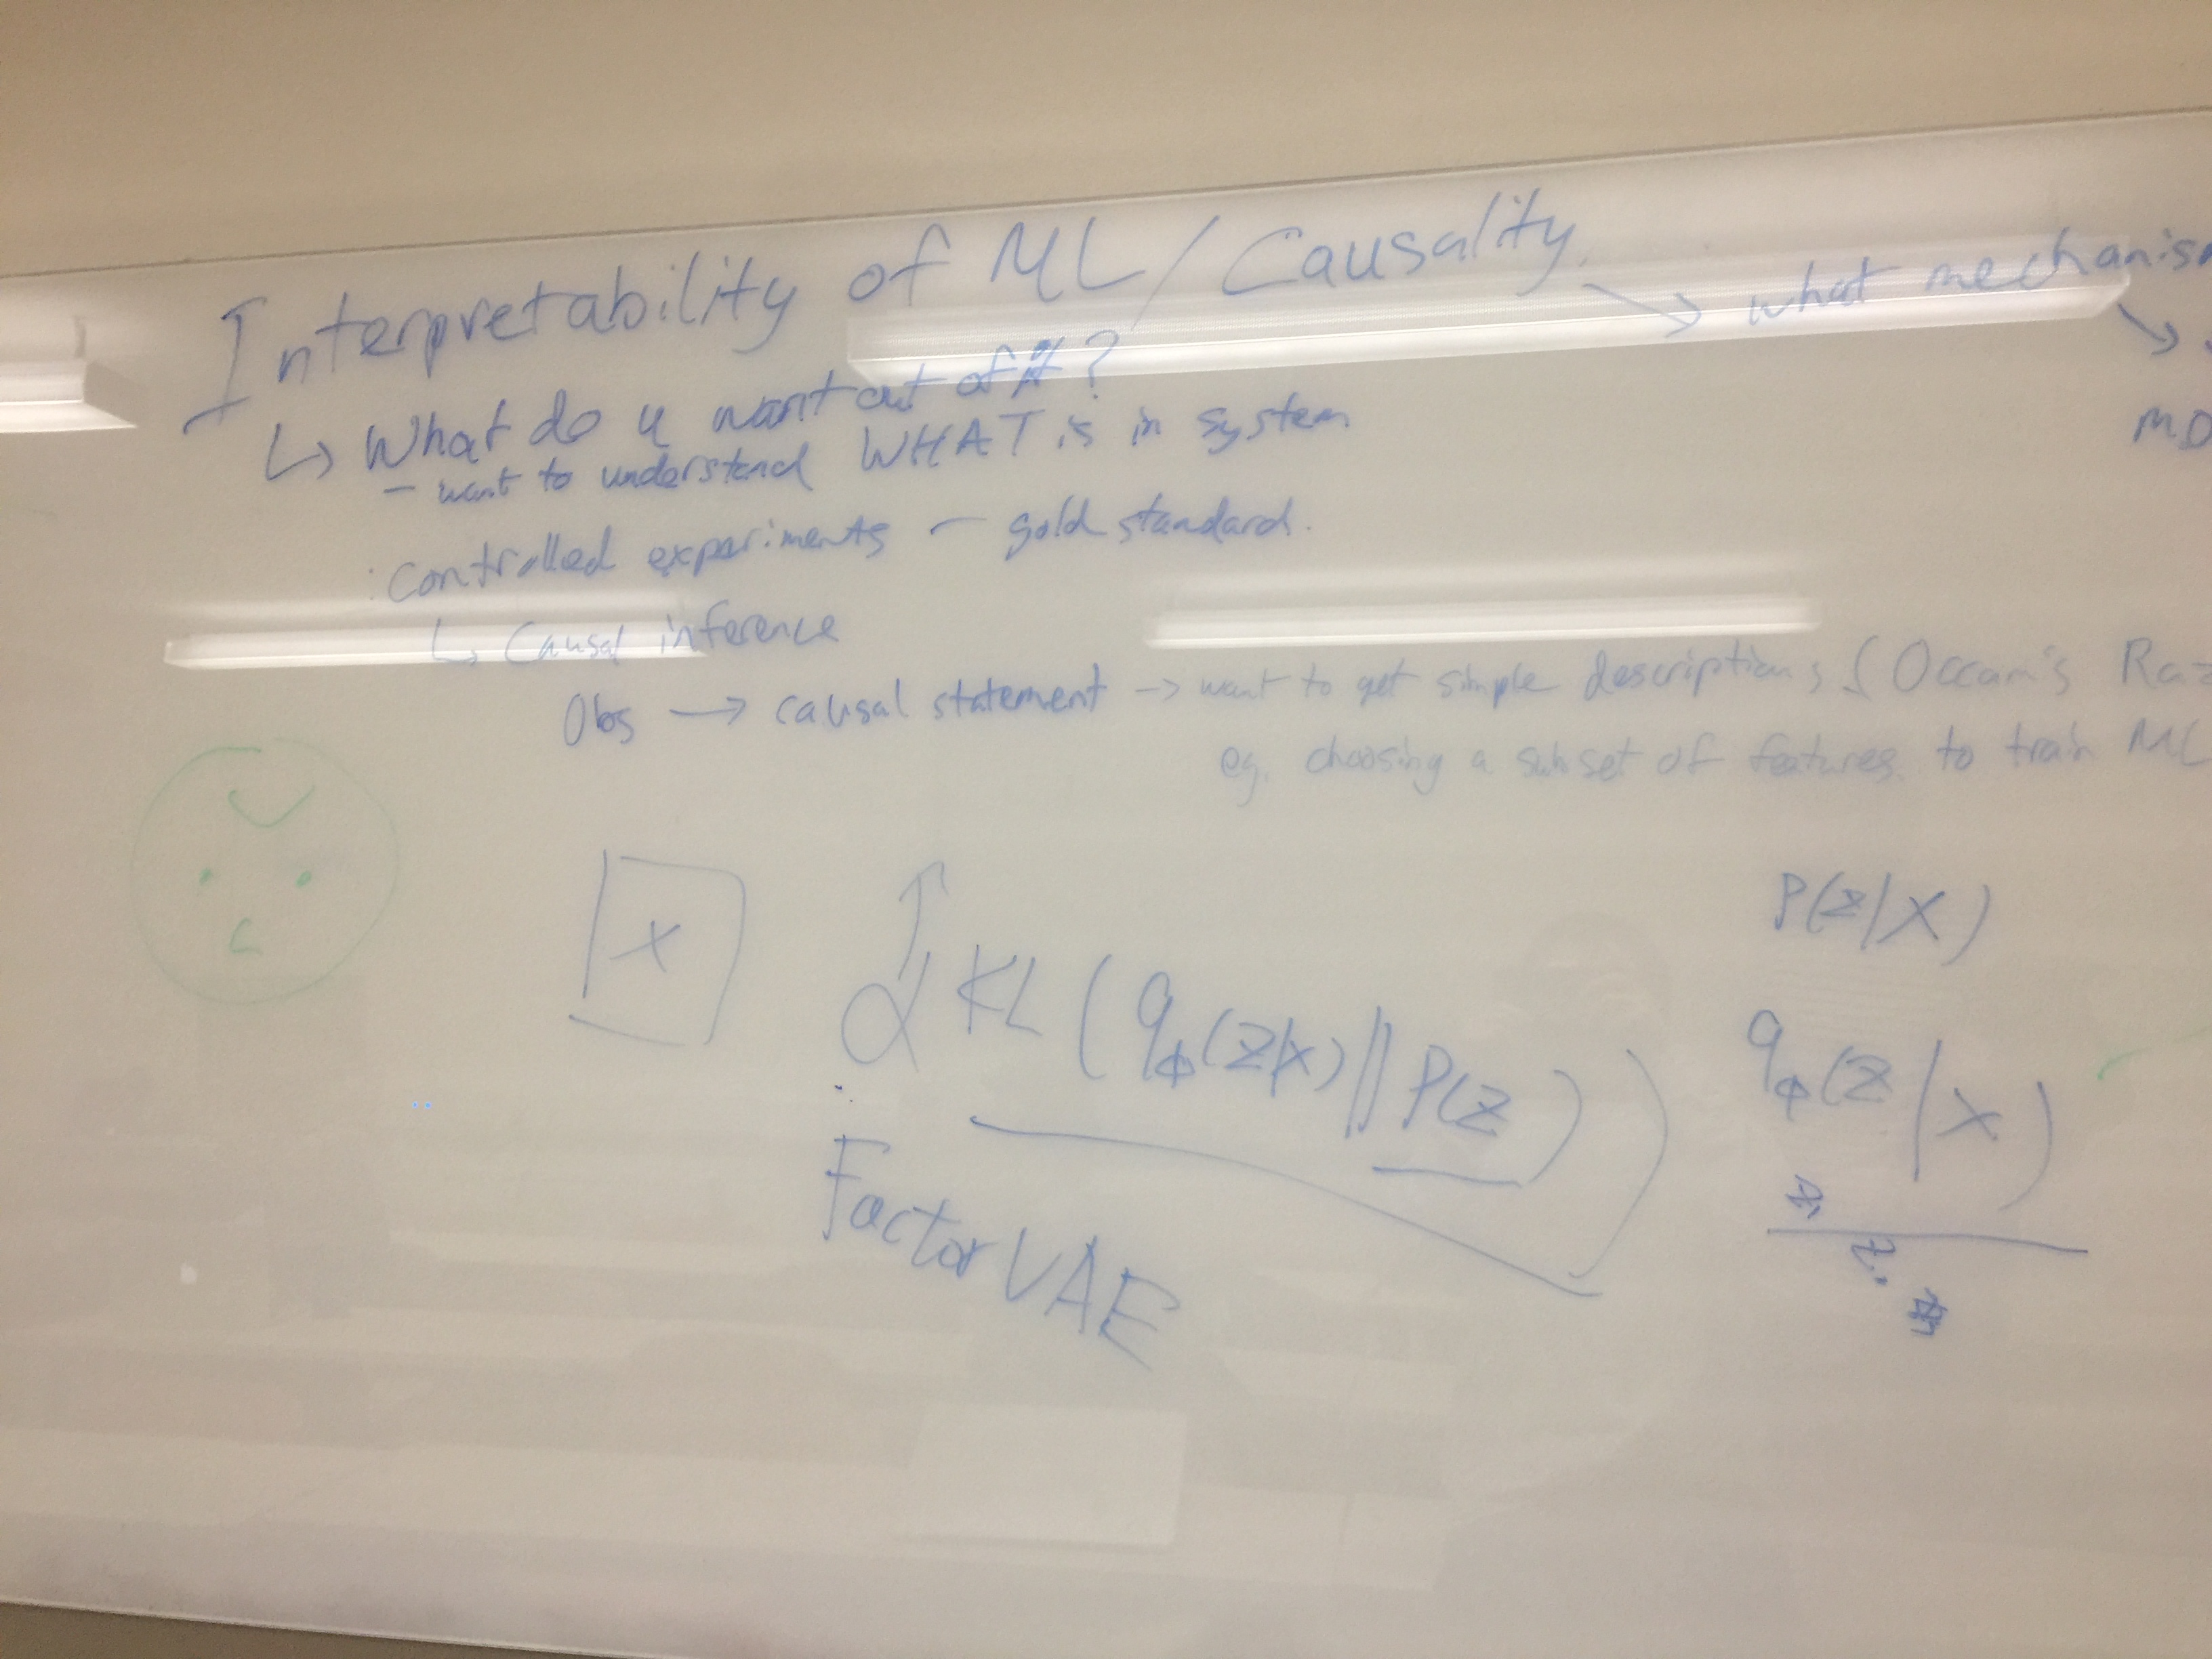 Interpretability of ML / Causality → what mechanism
↳ What do u want out of it?
- want to understand WHAT is in system
: controlled experiments - gold standard.
↳ Causal inference
Obs → causal statement → want to get simple descriptions (Occam's Raz
eg. choosing a subset of features to train ML
X
P(z|X)
α↑ KL(qϕ(z|x)||P(z))
qϕ(z|x)
Factor VAE